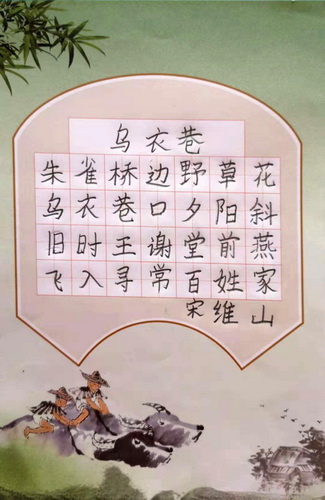 乌衣巷
朱雀桥边野草花
乌衣巷口夕阳斜
旧时王谢堂前燕
飞入寻常百姓家
宋维山